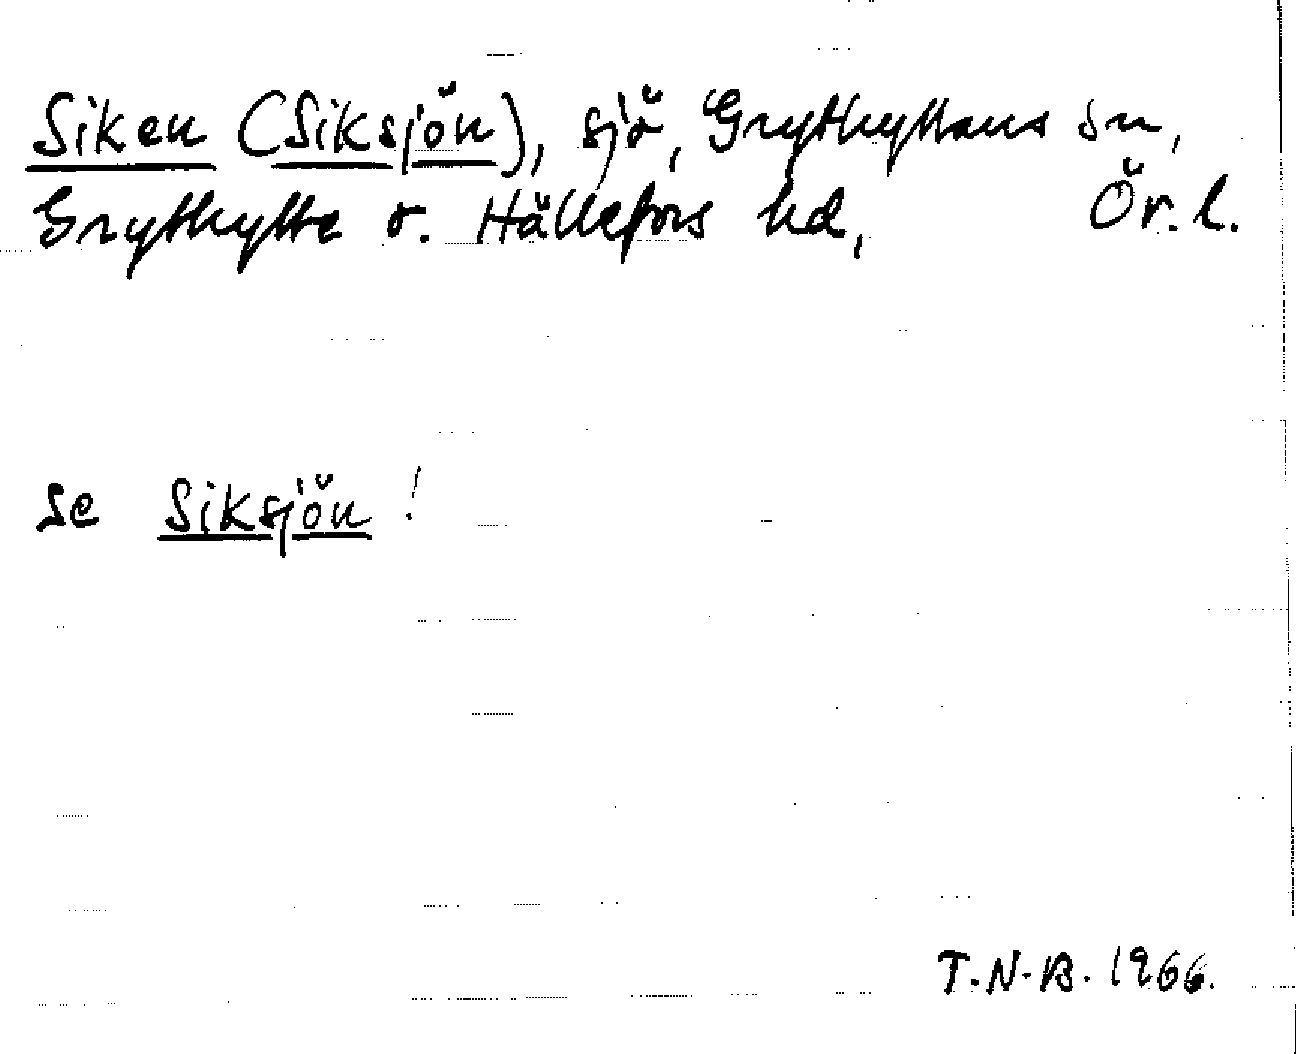 Siken (Siksjön), sjö, Grythyttans sn,
Grythytte o. Hällefors hd, Ör.l.
Se Siksjön!
T.N.B. 1966.